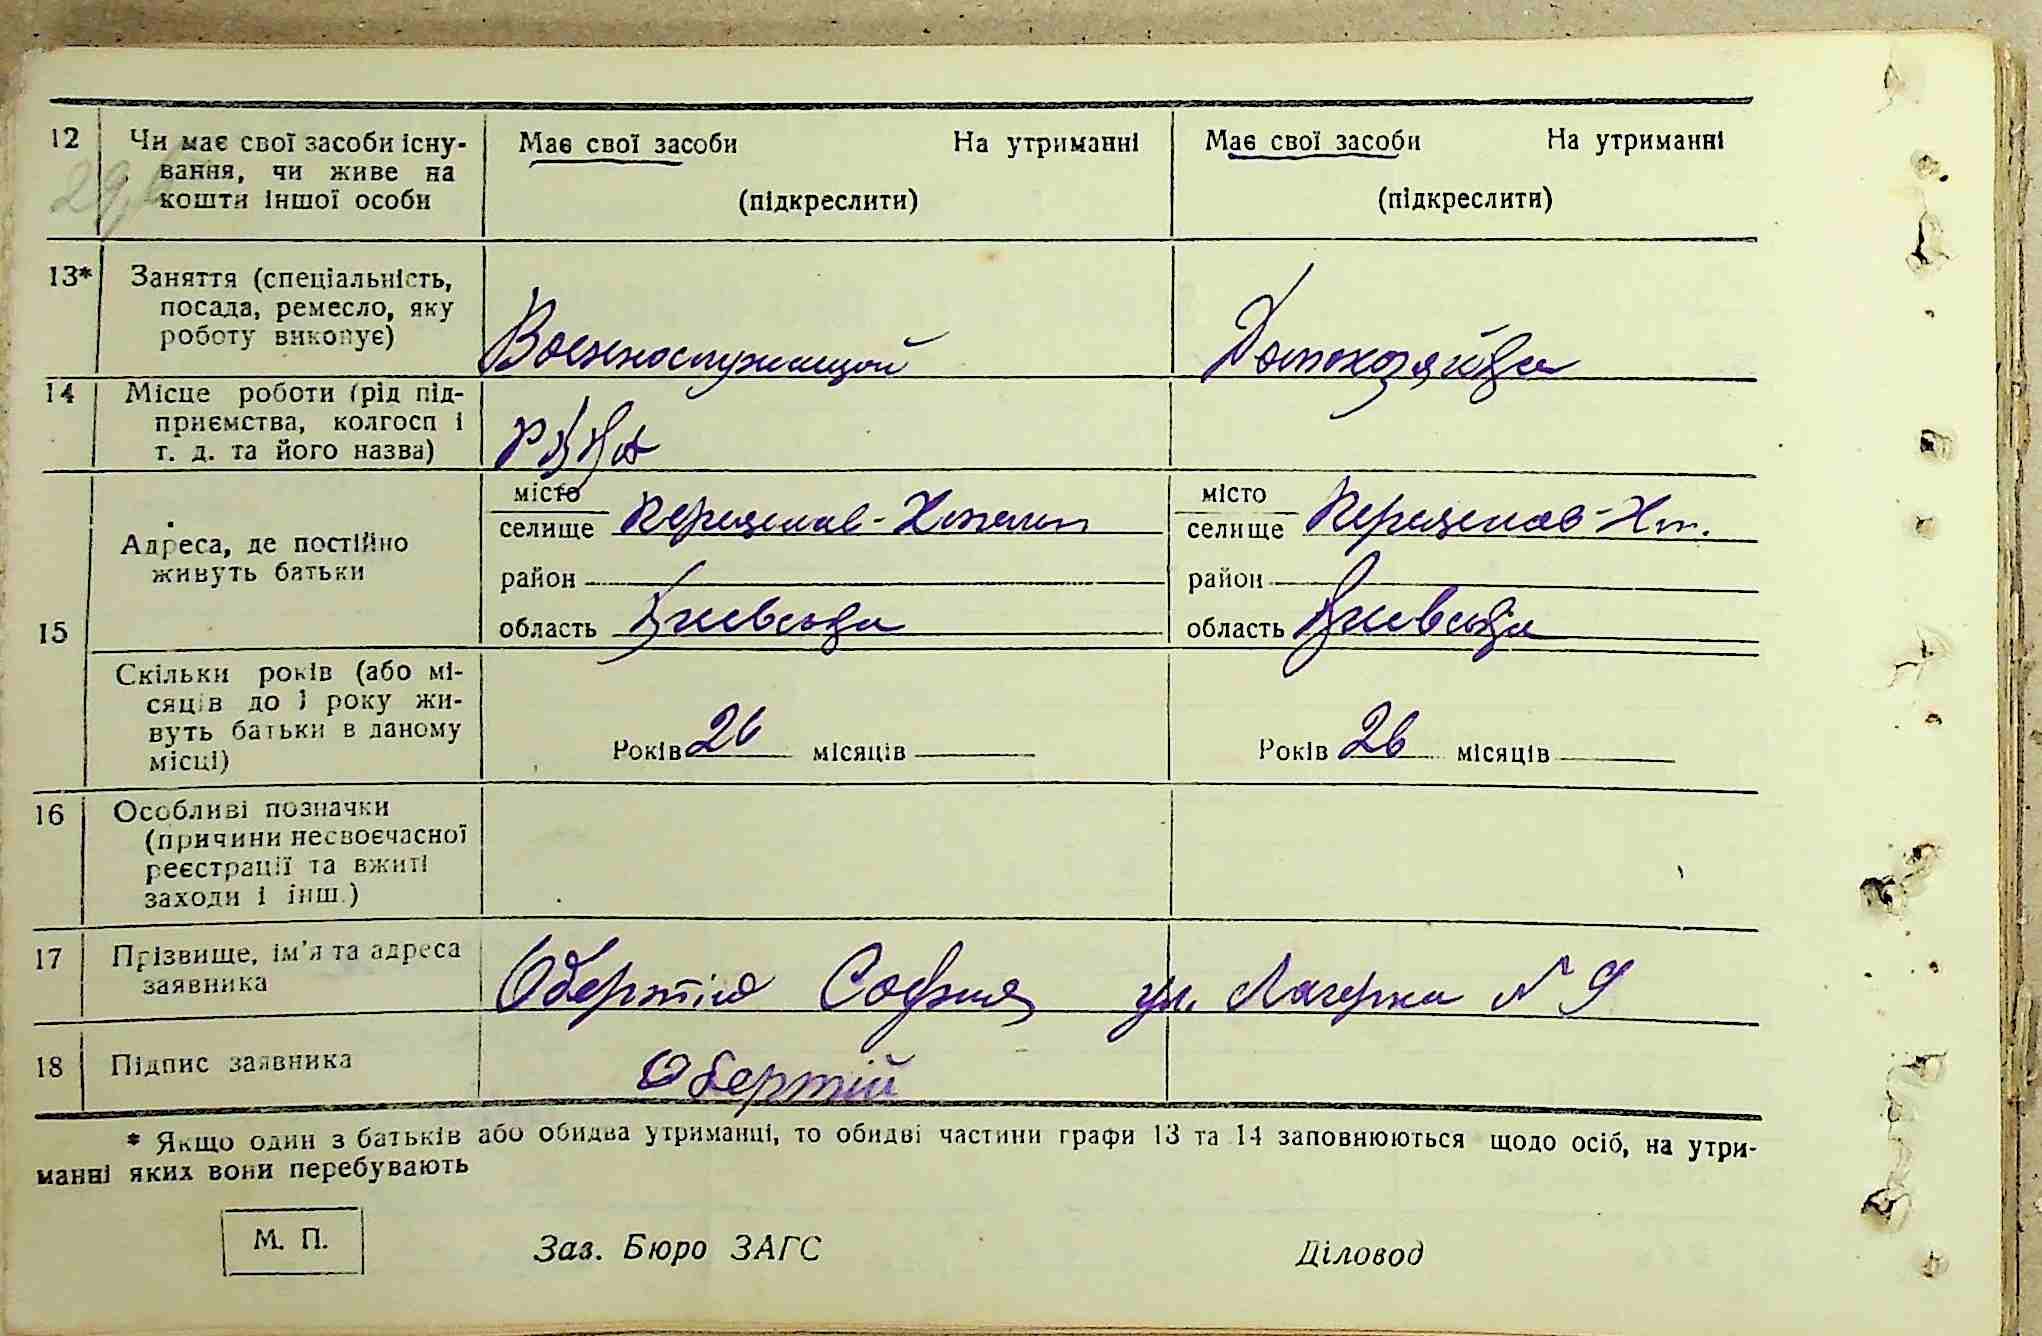 12 Чи має свої засоби існу- Має свої засоби На утриманні Має свої засоби На утриманні
вання, чи живе на
кошти іншої особи (підкреслити) (підкреслити)
13* Заняття (спеціальність,
посада, ремесло, яку
роботу виконує) Военнослужащой Домохозяйка
14 Місце роботи (рід під-
приємства, колгосп і
т. д. та його назва) РККА
15 Адреса, де постійно
живуть батьки
місто
селище Переяслав-Хмельн
район
область Киевська
місто
селище Переяслав-Хм.
район
область Киевська
Скільки років (або мі-
сяців до 1 року жи-
вуть батьки в даному
місці) Років 26 місяців Років 26 місяців
16 Особливі позначки
(причини несвоєчасної
реєстрації та вжиті
заходи і інш.)
17 Прізвище, ім'я та адреса
заявника София ул. Лагерна N 9
18 Підпис заявника Обертій
* Якщо один з батьків або обидва утриманці, то обидві частини графи 13 та 14 заповнюються щодо осіб, на утри-
манні яких вони перебувають
М. П. Зав. Бюро ЗАГС Діловод